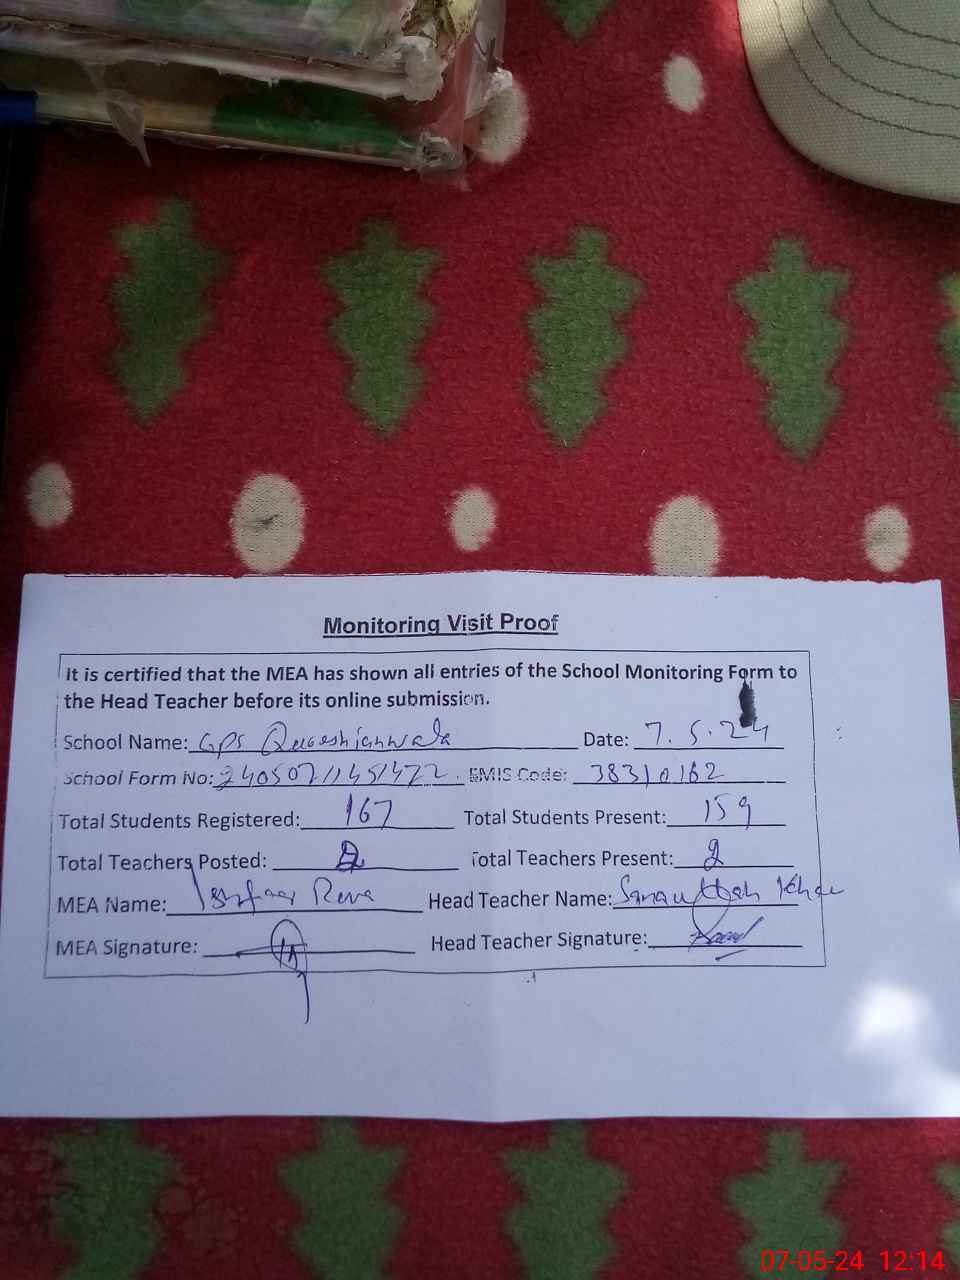 Monitoring Visit Proof
It is certified that the MEA has shown all entries of the School Monitoring Form to
the Head Teacher before its online submission.
School Name: GPS Qureshianwala Date: 7.5.24
School Form No: EMIS Code: 38310182
Total Students Registered: 167 Total Students Present: 159
Total Teachers Posted: 2 Total Teachers Present: 2
MEA Name: Head Teacher Name: Sanaullah Khan
MEA Signature: Head Teacher Signature:
07-05-24 12:14